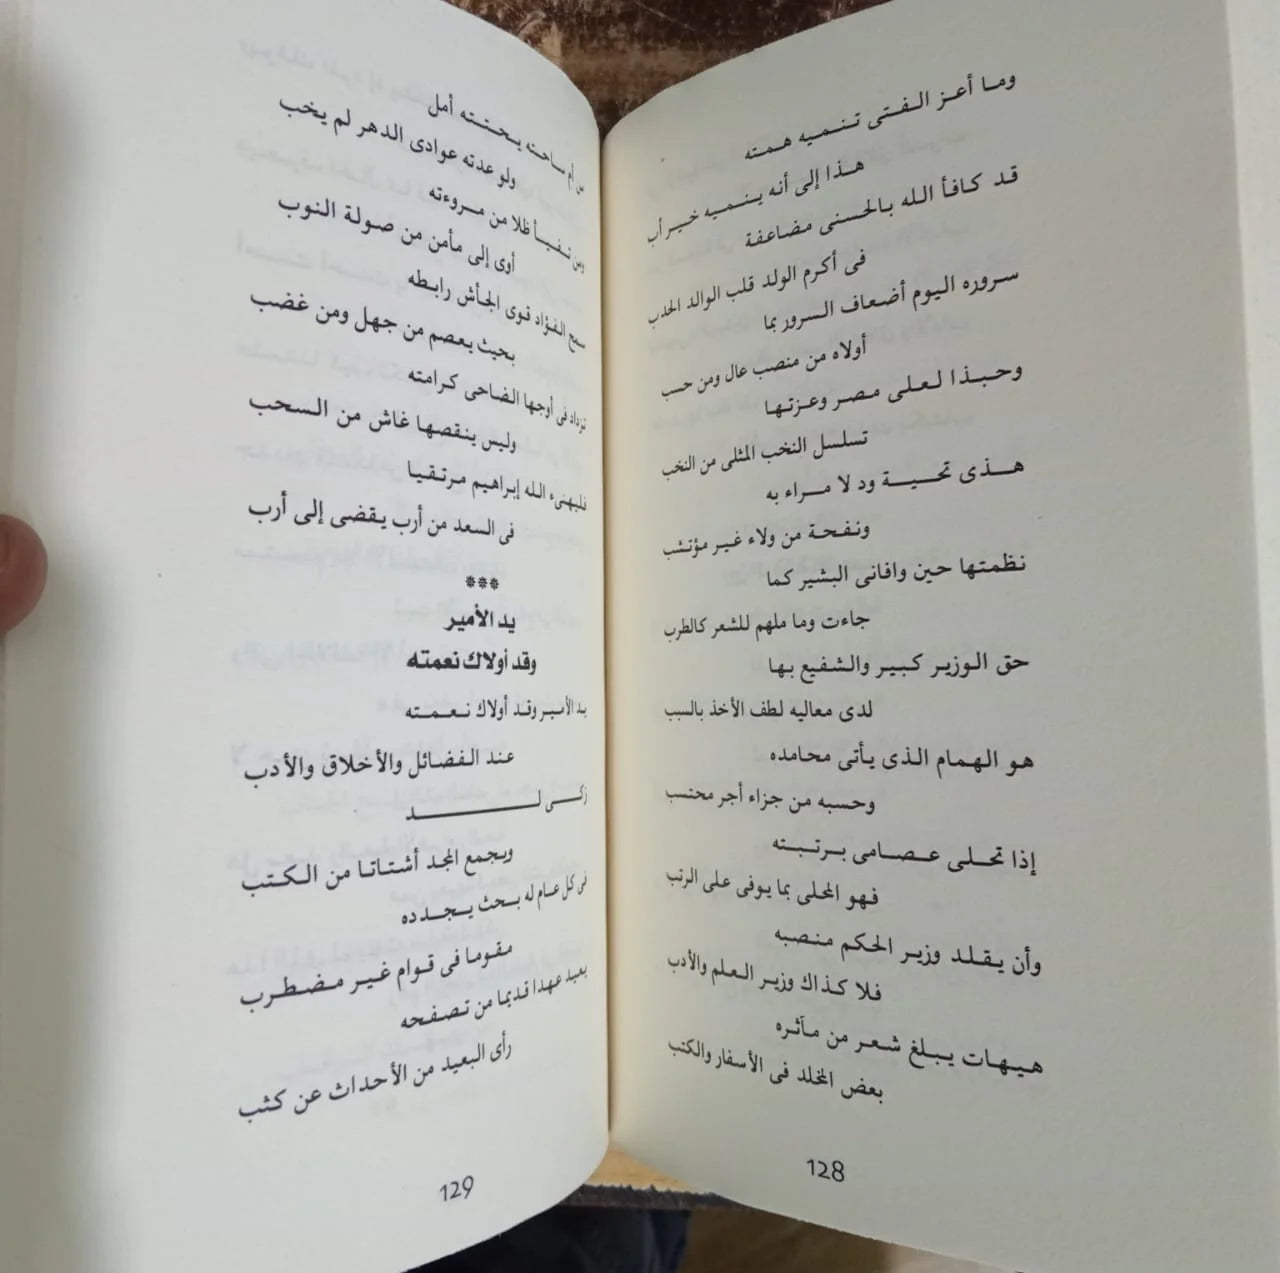 وما أعز الفتى تنميه همته
هذا إلى أنه ينميه خير أب
قد كافأ الله بالحسنى مضاعفة
فى أكرم الولد قلب الوالد الحدب
سروره اليوم أضعاف السرور بما
أولاه من منصب عال ومن حسب
وحبذا لعلى مصر وعزتها
تسلسل النخب المثلى من النخب
هذى تحية ود لا مراء به
ونفحة من ولاء غير مؤتشب
نظمتها حين وافانى البشير كما
جاءت وما ملهم للشعر كالطرب
حق الوزير كبير والشفيع بها
لدى معاليه لطف الأخذ بالسبب
هو الهمام الذى يأتى محامده
وحسبه من جزاء أجر محتسب
إذا تحلى عصامى برتبته
فهو المحلى بما يوفى على الرتب
وأن يقلد وزير الحكم منصبه
فلا كذاك وزير العلم والأدب
هيهات يبلغ شعر من مآثره
بعض المخلد فى الأسفار والكتب
128
من أم ساحته يحتته أمل
ولو عدته عوادى الدهر لم يخب
ومن تفيأ ظلا من مروءته
أوى إلى مأمن من صولة النوب
سمح الفؤاد قوى الجأش رابطه
بحيث يعصم من جهل ومن غضب
تزداد فى أوجها الضاحى كرامته
وليس ينقصها غاش من السحب
فليهنىء الله إبراهيم مرتقيا
فى السعد من أرب يقضى إلى أرب
***
يد الأمير
وقد أولاك نعمته
يد الأمير وقد أولاك نعمته
عند الفضائل والأخلاق والأدب
زكى لـــد
ويجمع المجد أشتاتا من الكتب
فى كل عام له بحث يجدده
مقوما فى قوام غير مضطرب
بعيد عهدا قديما من تصفحه
رأى البعيد من الأحداث عن كثب
129